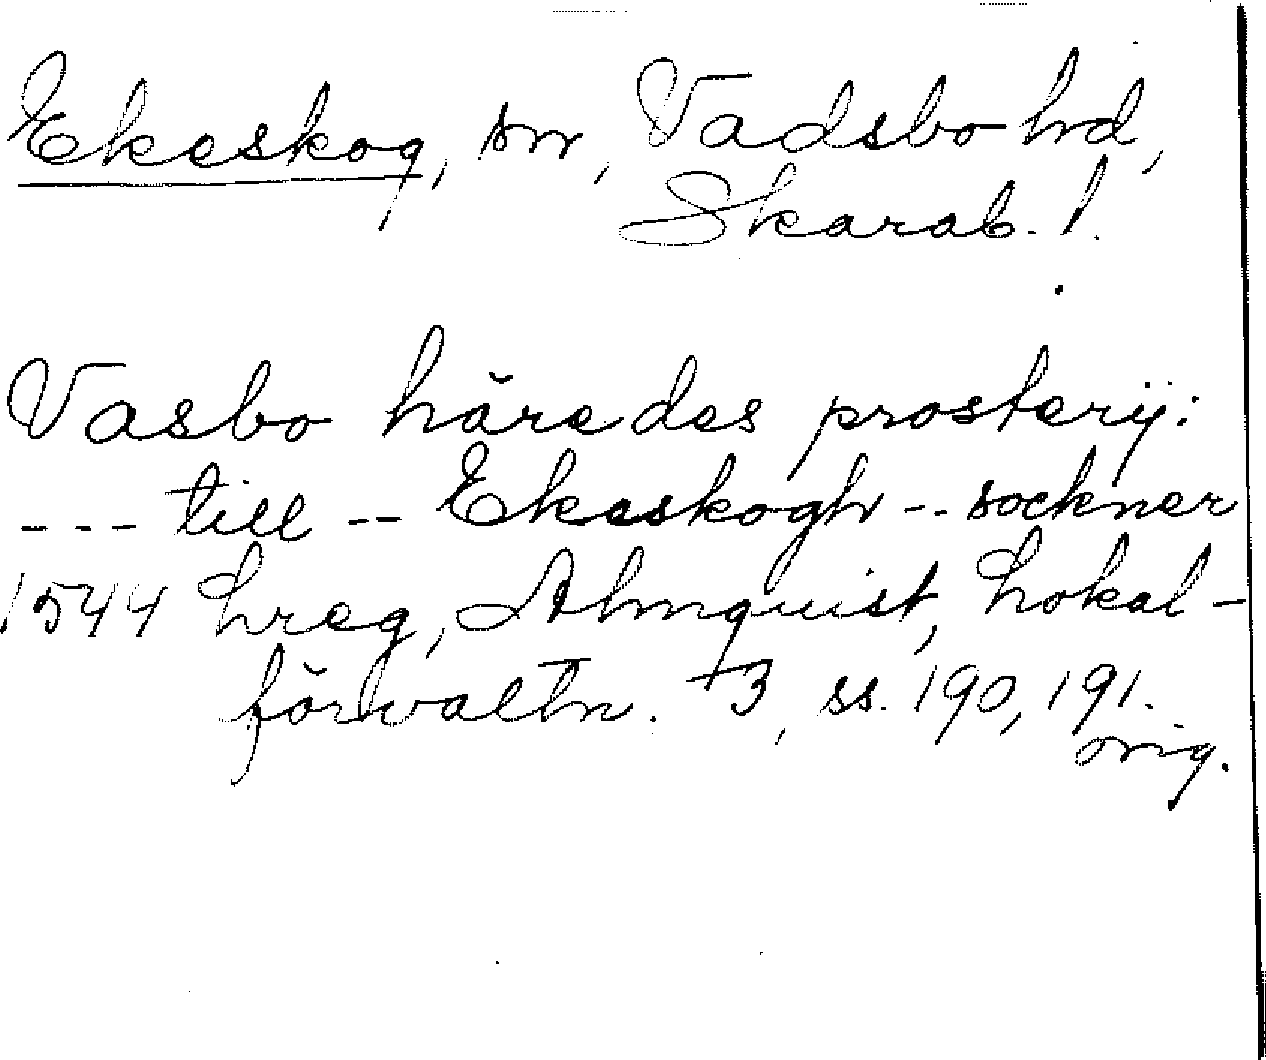 Ekeskog, sn, Vadsbo hd,
Skarab. l.
Vasbo häredes prosterÿ:
--- till -- Ekeskogh -- sockner
1544 Lreg, Almquist, Lokal-
förvaltn. 3, ss. 190, 191.
orig.